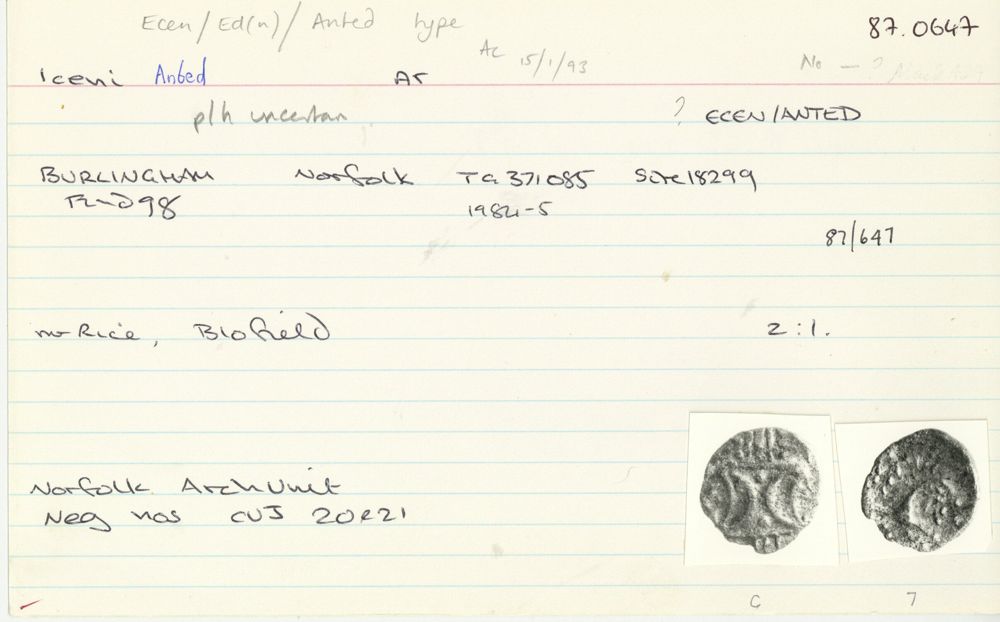 Ecen/Ed(n)/Anted type
87.0647
AC 15/1/93
No - ?
Iceni Anted Ar
plh uncertan
? ECEN/ANTED
BURLINGHAM Norfolk TG 371085 Site 18299
Find 98 1984-5
87/647
Mr Rice, Blofield 2:1.
Norfolk Arch Unit
Neg nos CUJ 20&21
6 7